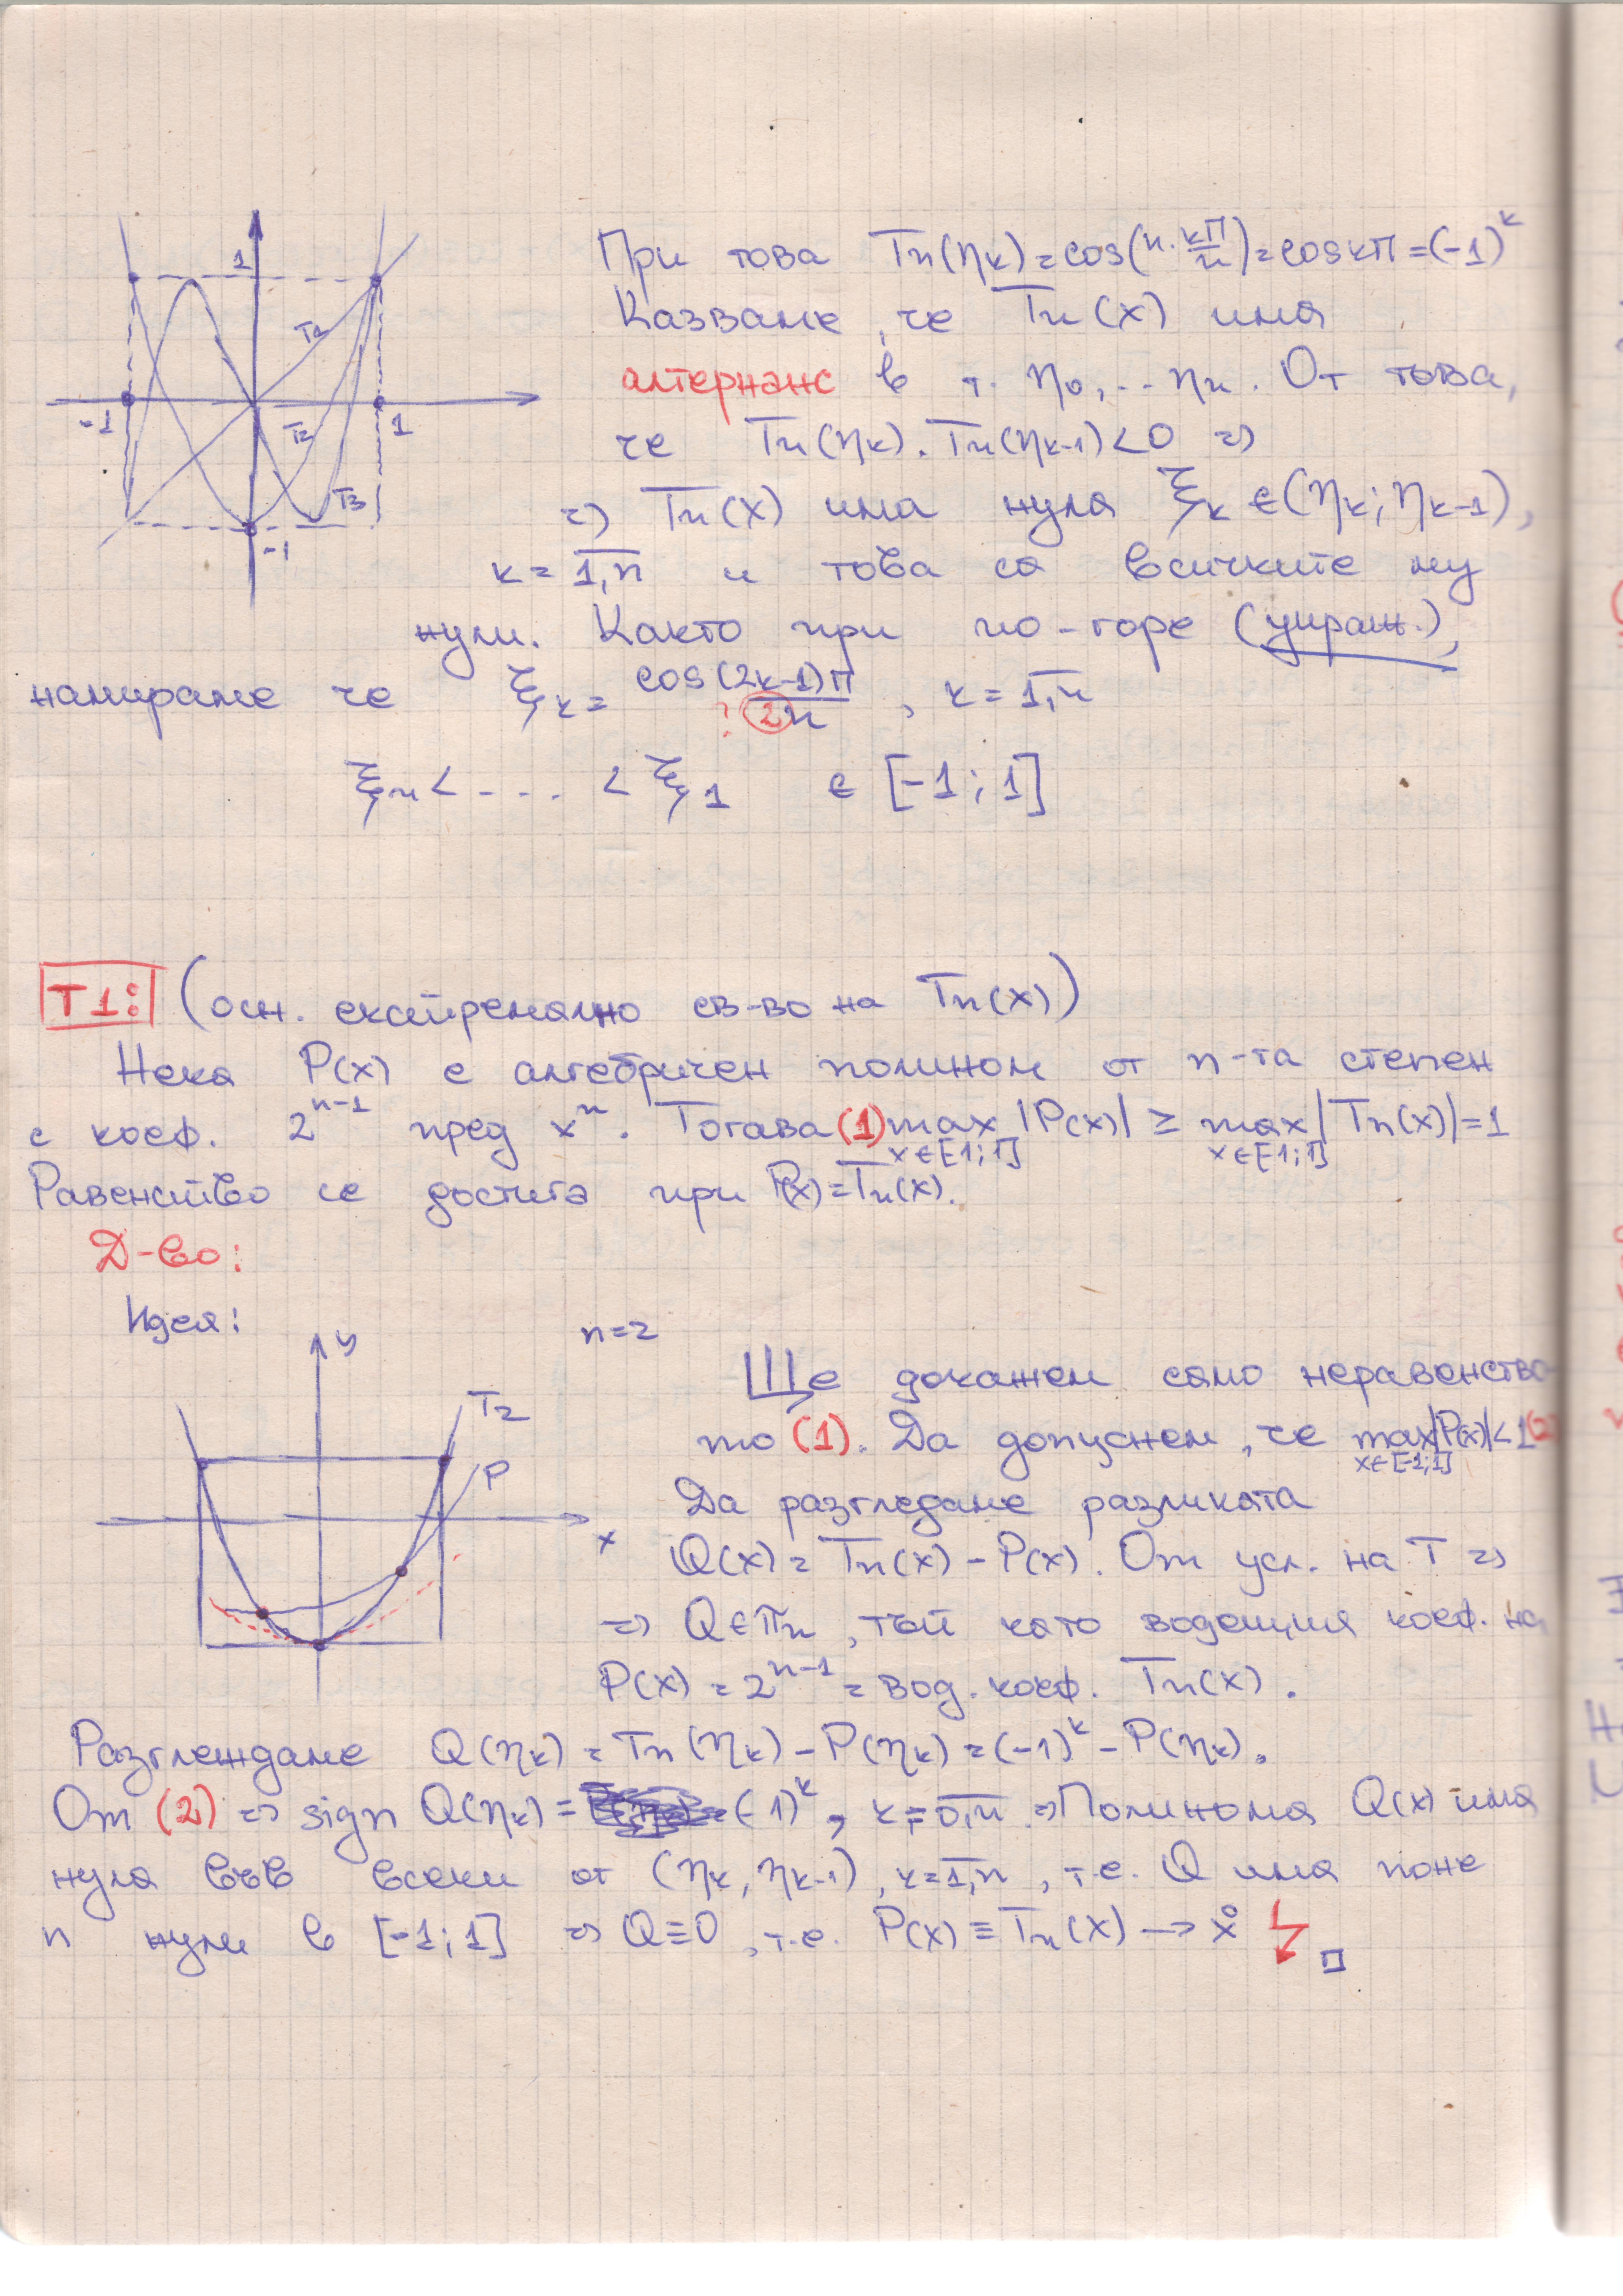 При това Tn(ηk)=cos(n.kπ/n)=coskπ=(-1)^k
Казваме, че Tn(x) има
алтернанс в т. η0,...ηn. От това,
че Tn(ηk).Tn(ηk-1)<0 =>
=> Tn(x) има нула ξk ∈(ηk;ηk-1),
k=1,n и това са всичките му
нули. Както при по-горе (упраж.),
намираме че ξk= cos(2k-1)π/2n , k=1,n
ξn<....<ξ1 ∈ [-1;1]
1
T1
-1
T2
1
T3
-1
T1: (осн. екстремално св-во на Tn(x))
Нека P(x) е алгебричен полином от n-та степен
с коеф. 2^n-1 пред x^n. Тогава (1) max x∈[-1;1] |P(x)| ≥ max x∈[-1;1] |Tn(x)|=1
Равенство се достига при P(x)=Tn(x).
Д-во:
Идея:
n=2
y
T2
P
x
Ще докажем само неравенство-
то (1). Да допуснем, че max x∈[-1;1] |P(x)|<1 (2)
Да разгледаме разликата
Q(x)=Tn(x)-P(x). От усл. на T =>
=> Q∈πn, тъй като водещия коеф. на
P(x)=2^n-1=вод. коеф. Tn(x).
Разглеждаме Q(ηk)=Tn(ηk)-P(ηk)=(-1)^k-P(ηk).
От (2) => sign Q(ηk)=(-1)^k, k=0,n => Полинома Q(x) има
нула във всеки от (ηk,ηk-1), k=1,n, т.е. Q има поне
n нули в [-1;1] => Q≡0, т.е. P(x)≡Tn(x) →